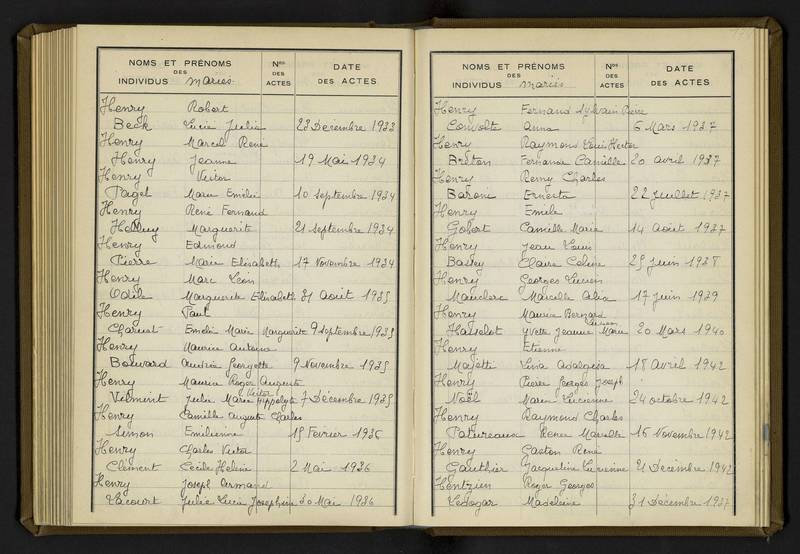 NOMS ET PRÉNOMS
DES
INDIVIDUS mariés
Nos
DES
ACTES
DATE
DES ACTES
Henry Robert
Beck Lucie Julie 23 Décembre 1933
Henry Marcel René
Henry Jeanne 19 Mai 1934
Henry Victor
Paget Marie Emilie 10 septembre 1934
Henry René Fernand
Henry Marguerite 21 septembre 1934
Henry Edmond
Pierre Marie Elisabeth 17 Novembre 1934
Henry Marc Léon
Odile Marguerite Elisabeth 31 Août 1935
Henry Paul
Emélie Marie Marguerite 9 septembre 1935
Henry Maurice Antoine
Bouvard Andrée Georgette 9 Novembre 1935
Henry Maurice Roger Auguste
Vilmint Julie Marie Victor Hippolyte 7 Décembre 1935
Henry Camille Auguste Charles
Simon Emilienne 15 Février 1936
Henry Charles Victor
Clément Cécile Hélène 2 Mai 1936
Henry Joseph Armand
Lacourt Julie Lucie Joséphine 30 Mai 1936
NOMS ET PRÉNOMS
DES
INDIVIDUS mariés
Nos
DES
ACTES
DATE
DES ACTES
Henry Fernand Sylvain Pierre
Anna 6 Mars 1937
Henry Raymond Louis
Breton Fernande Camille 20 avril 1937
Henry Remy Charles
Baroni Ernesta 22 Juillet 1937
Henry Emile
Gobert Camille Marie 14 Août 1937
Henry Jean Louis
Claire Céline 25 Juin 1938
Henry Georges Lucien
Mauclerc Marcelle Alice 17 Juin 1939
Henry Maurice Bernard
Havelot Yvette Jeanne Marie 20 Mars 1940
Henry Etienne
Majetti Lina Adalgisa 18 Avril 1942
Henry Pierre Georges Joseph
Noël Marie Lucienne 24 octobre 1942
Henry Raymond Charles
Patureaux Renée Marcelle 16 Novembre 1942
Henry Gaston René
Gauthier Jacqueline Lucienne 21 Décembre 1942
Hentzien Roger Georges
Ledogar Madeleine 31 Décembre 1937